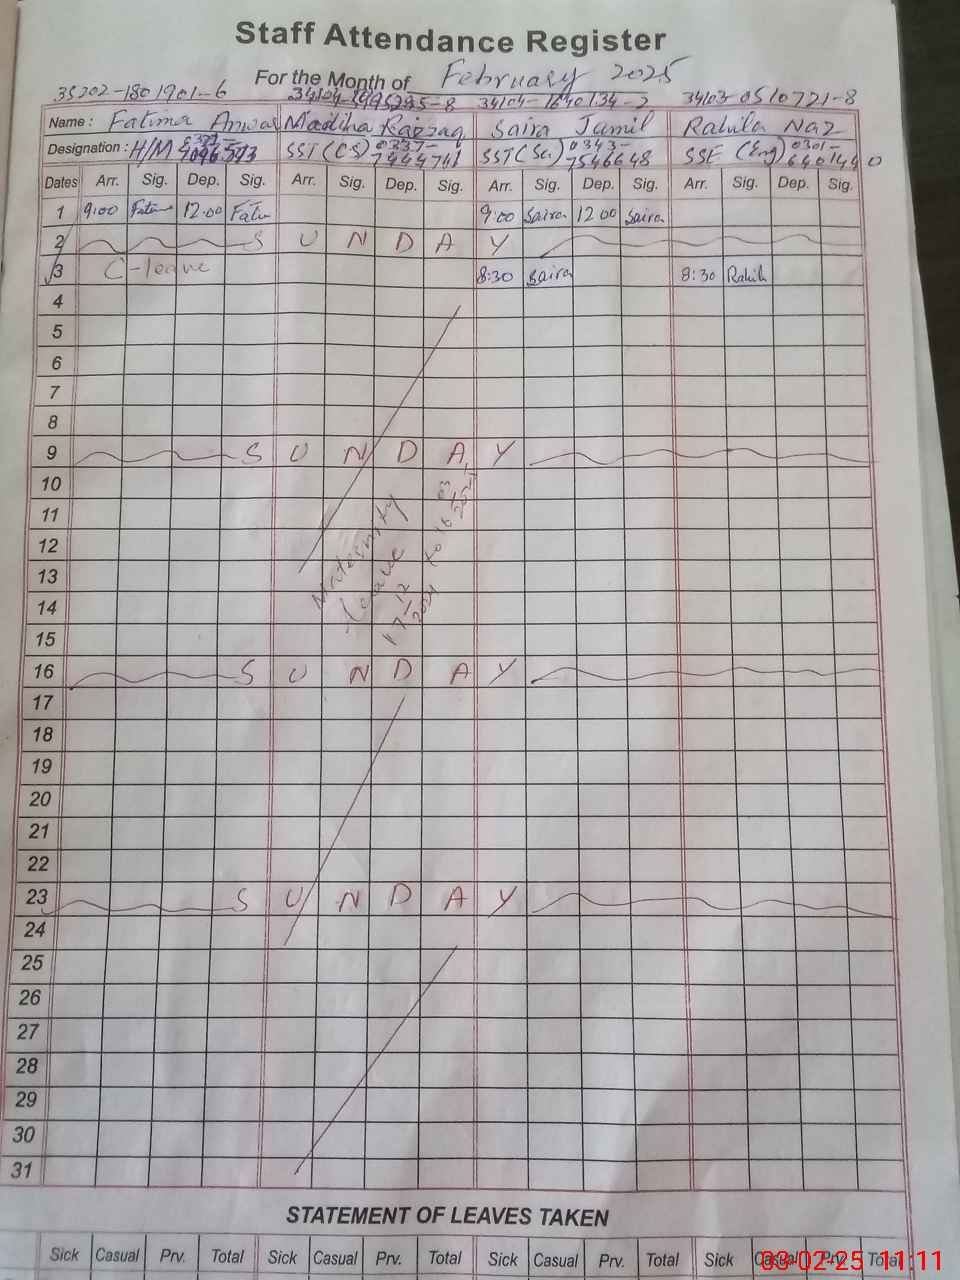 Staff Attendance Register
For the Month of February 2025
35202-1801901-6 34104-1640134-2 34103-0510721-8
Name : Fatima Anwar Madiha Razzaq Saira Jamil Rahila Naz
Designation : H/M SST (CS) 0337- SST (Sc) 0343- SSE (Eng) 0301-
7444741 7546648 6401440
Dates Arr. Sig. Dep. Sig. Arr. Sig. Dep. Sig. Arr. Sig. Dep. Sig. Arr. Sig. Dep. Sig.
1 9:00 12:00 9:00 Saira 12 00 Saira
2 S U N D A Y
3 C-leave 8:30 Saira 8:30 Rahila
4
5
6
7
8
9 S U N D A Y
10
11
12
13
14
15
Maternity
leave
17-12-2024 to 16-03-2025
16 S U N D A Y
17
18
19
20
21
22
23 S U N D A Y
24
25
26
27
28
29
30
31
STATEMENT OF LEAVES TAKEN
Sick Casual Prv. Total Sick Casual Prv. Total Sick Casual Prv. Total Sick Casual Prv. Total
03-02-25 11:11